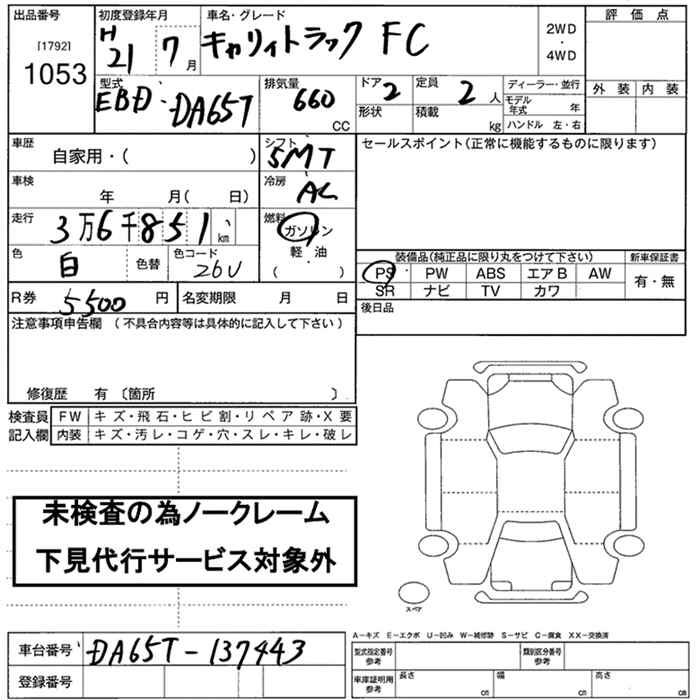 出品番号
[1792]
1053
初度登録年月
H21 7月
車名・グレード
キャリィトラック FC
2WD
・
4WD
評価点
外装 内装
型式
EBD-DA65T
排気量
660
CC
ドア 2
形状
定員 2人
積載 kg
ディーラー・並行
モデル年式 年
ハンドル 左・右
車歴
自家用・( )
シフト
5MT
セールスポイント(正常に機能するものに限ります)
車検
年 月( 日)
冷房
AC
走行
3万6千851km
燃料
ガソリン
軽・油
( )
色
白
色替
色コード
26U
装備品(純正品に限り丸をつけて下さい)
新車保証書
PS PW ABS エアB AW
SR ナビ TV カワ
有・無
R券 5500円
名変期限 月 日
後日品
注意事項申告欄 (不具合内容等は具体的に記入して下さい)
修復歴 有 〔箇所 〕
検査員
記入欄
FW キズ・飛石・ヒビ割・リペア跡・X要
内装 キズ・汚レ・コゲ・穴・スレ・キレ・破レ
未検査の為ノークレーム
下見代行サービス対象外
スペア
A−キズ E−エクボ U−凹み W−補修跡 S−サビ C−腐食 XX−交換済
車台番号 DA65T-137443
登録番号
型式指定番号
参考
類別区分番号
参考
車庫証明用
参考
長さ cm
幅 cm
高さ cm